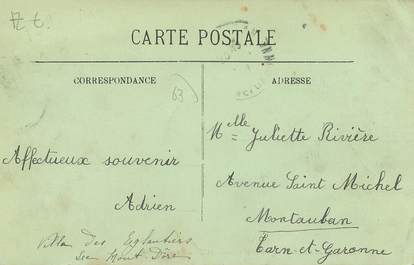 CARTE POSTALE
CORRESPONDANCE
ADRESSE
63
Affectueux souvenir
Adrien
Villa des Eglantiers
Le Mont Dore
Mlle Juliette Rivière
Avenue Saint Michel
Montauban
Tarn-et-Garonne